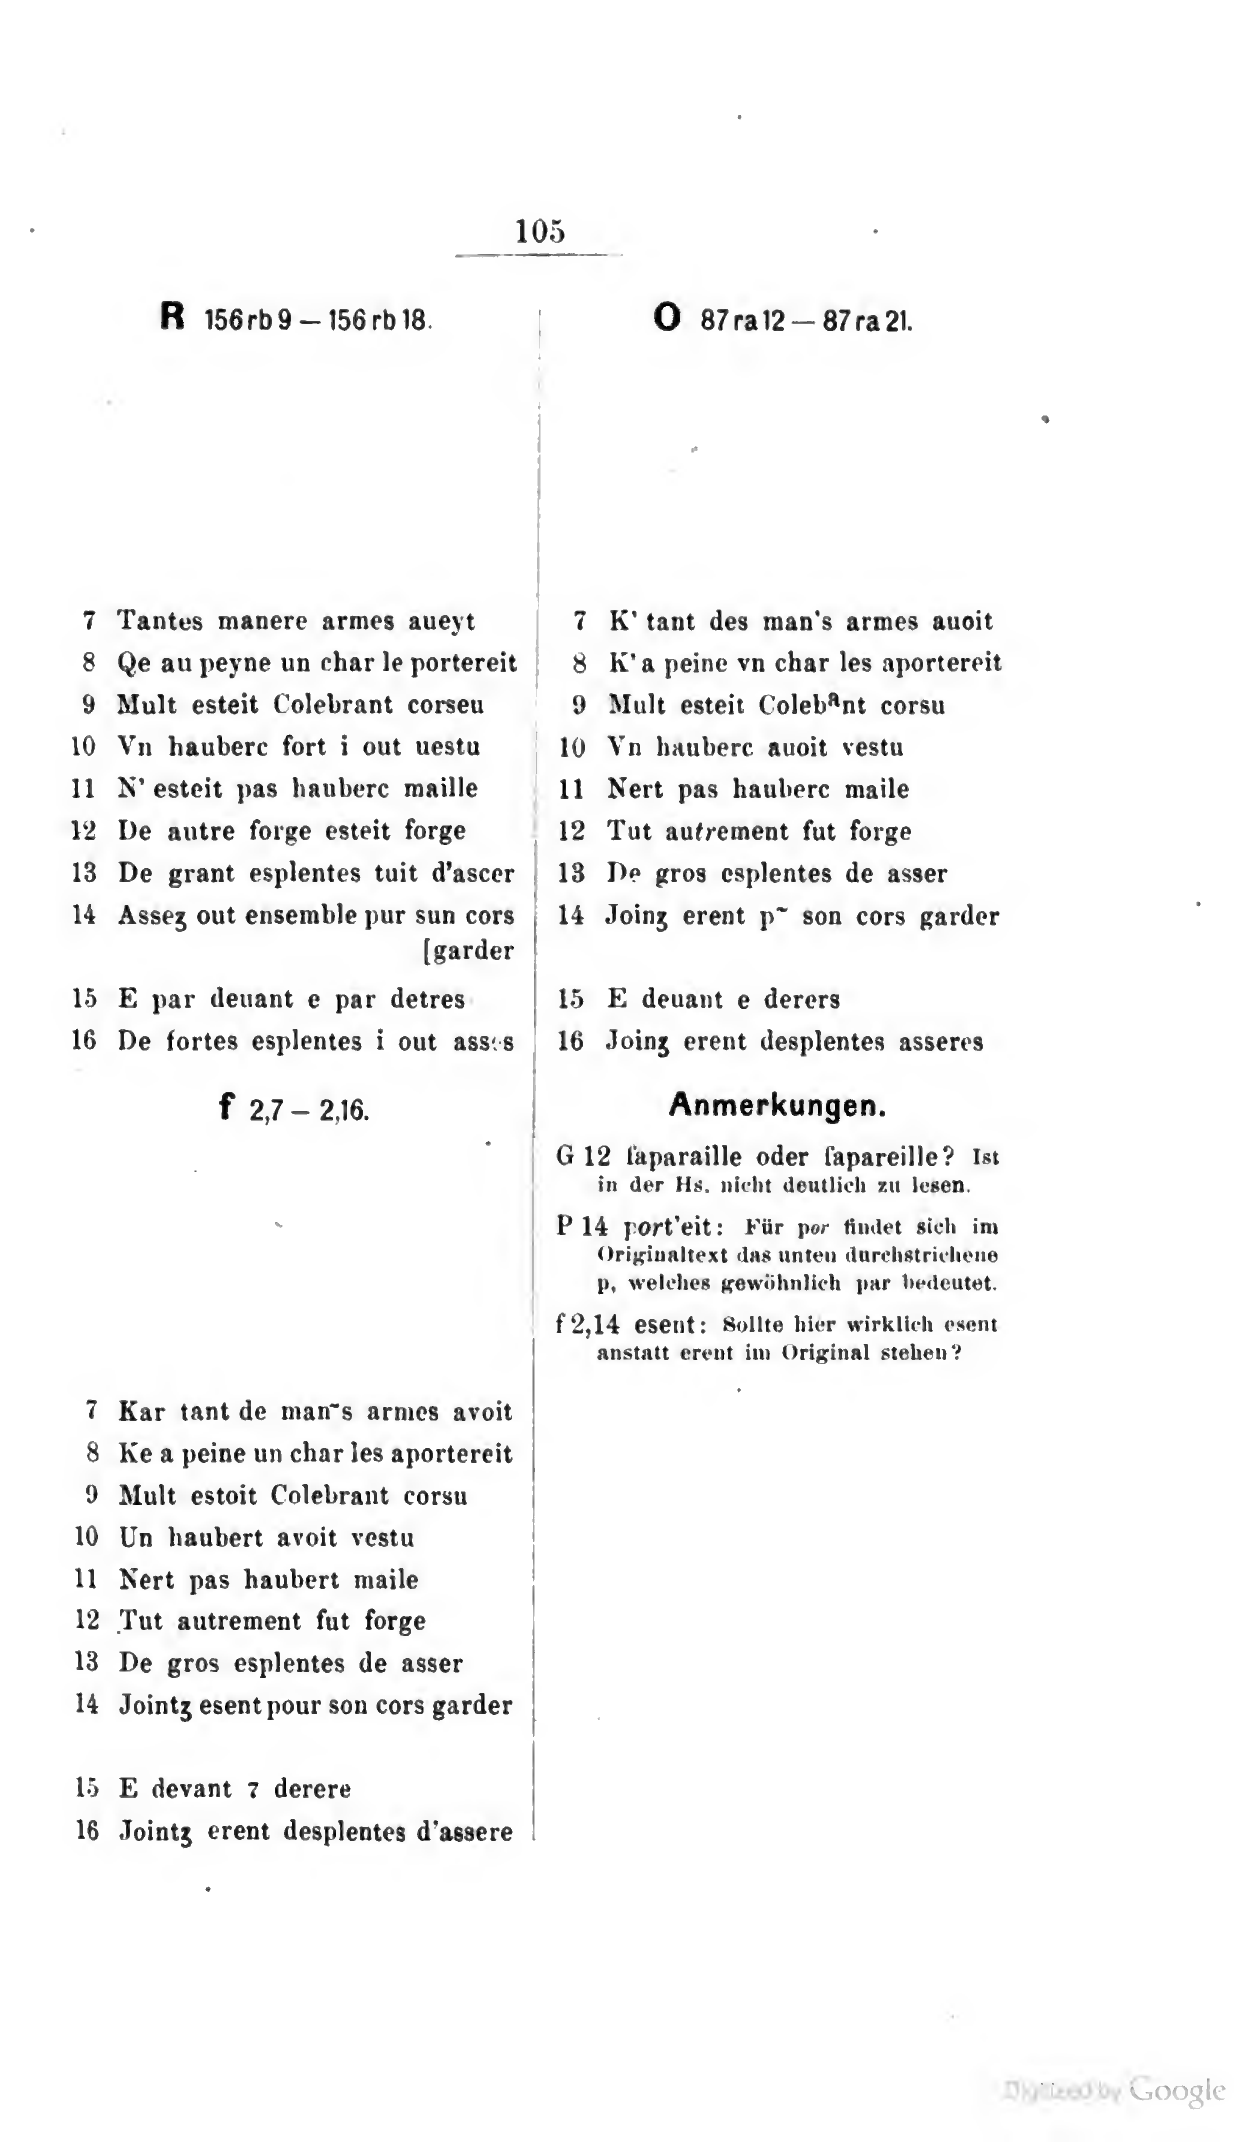 105
R 156rb9 – 156rb18.
7 Tantes manere armes aueyt
8 Qe au peyne un char le portereit
9 Mult esteit Colebrant corseu
10 Vn hauberc fort i out uestu
11 N' esteit pas hauberc maille
12 De autre forge esteit forge
13 De grant esplentes tuit d'ascer
14 Asseʒ out ensemble pur sun cors
[garder
15 E par deuant e par detres
16 De fortes esplentes i out asses
O 87ra12 — 87ra21.
7 K' tant des man's armes auoit
8 K' a peine vn char les aportereit
9 Mult esteit Colebᵃnt corsu
10 Vn hauberc auoit vestu
11 Nert pas hauberc maile
12 Tut autrement fut forge
13 De gros esplentes de asser
14 Joinʒ erent p~ son cors garder
15 E deuant e derers
16 Joinʒ erent desplentes asseres
f 2,7 – 2,16.
7 Kar tant de man~s armes avoit
8 Ke a peine un char les aportereit
9 Mult estoit Colebrant corsu
10 Un haubert avoit vestu
11 Nert pas haubert maile
12 Tut autrement fut forge
13 De gros esplentes de asser
14 Jointʒ esent pour son cors garder
15 E devant 7 derere
16 Jointʒ erent desplentes d'assere
Anmerkungen.
G 12 ſaparaille oder ſapareille? Ist
in der Hs. nicht deutlich zu lesen.
P 14 port'eit: Für por findet sich im
Originaltext das unten durchstrichene
p, welches gewöhnlich par bedeutet.
f 2,14 esent: Sollte hier wirklich esent
anstatt erent im Original stehen?
Digitized by Google